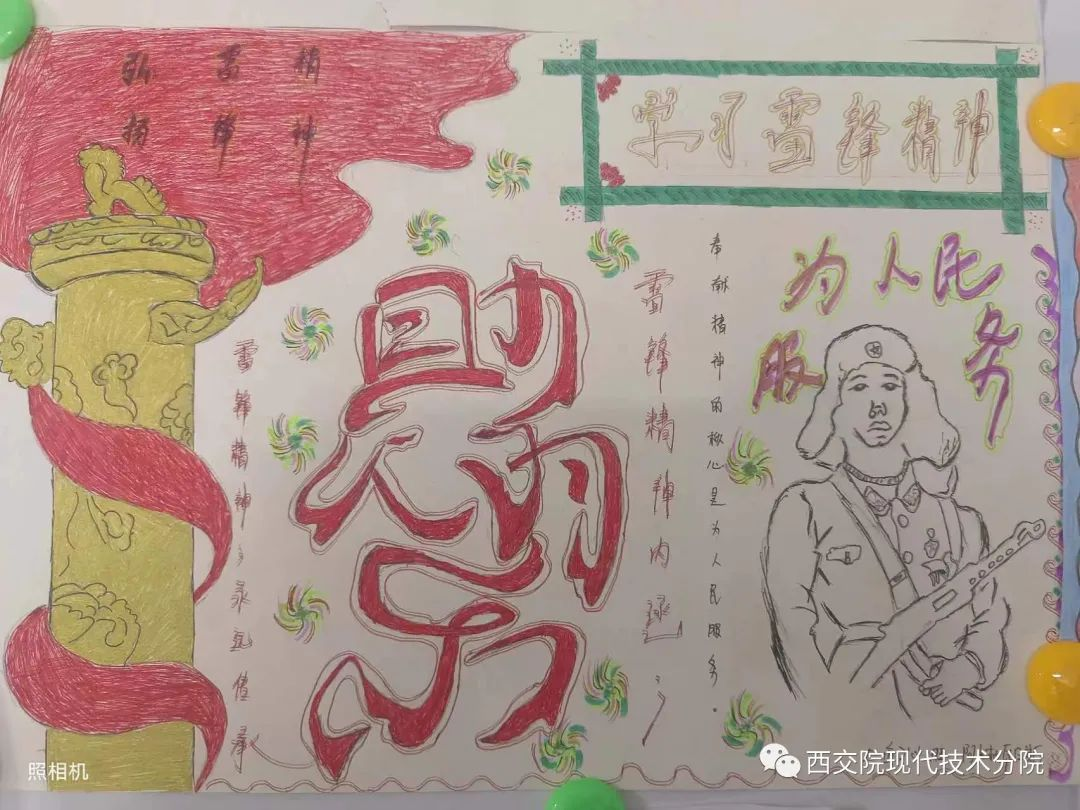 弘扬雷锋精神
学习雷锋精神
为人民服务
助人为乐
雷锋精神
雷锋精神内
奉献精神的核心是为人民服务。
照相机
西交院现代技术分院